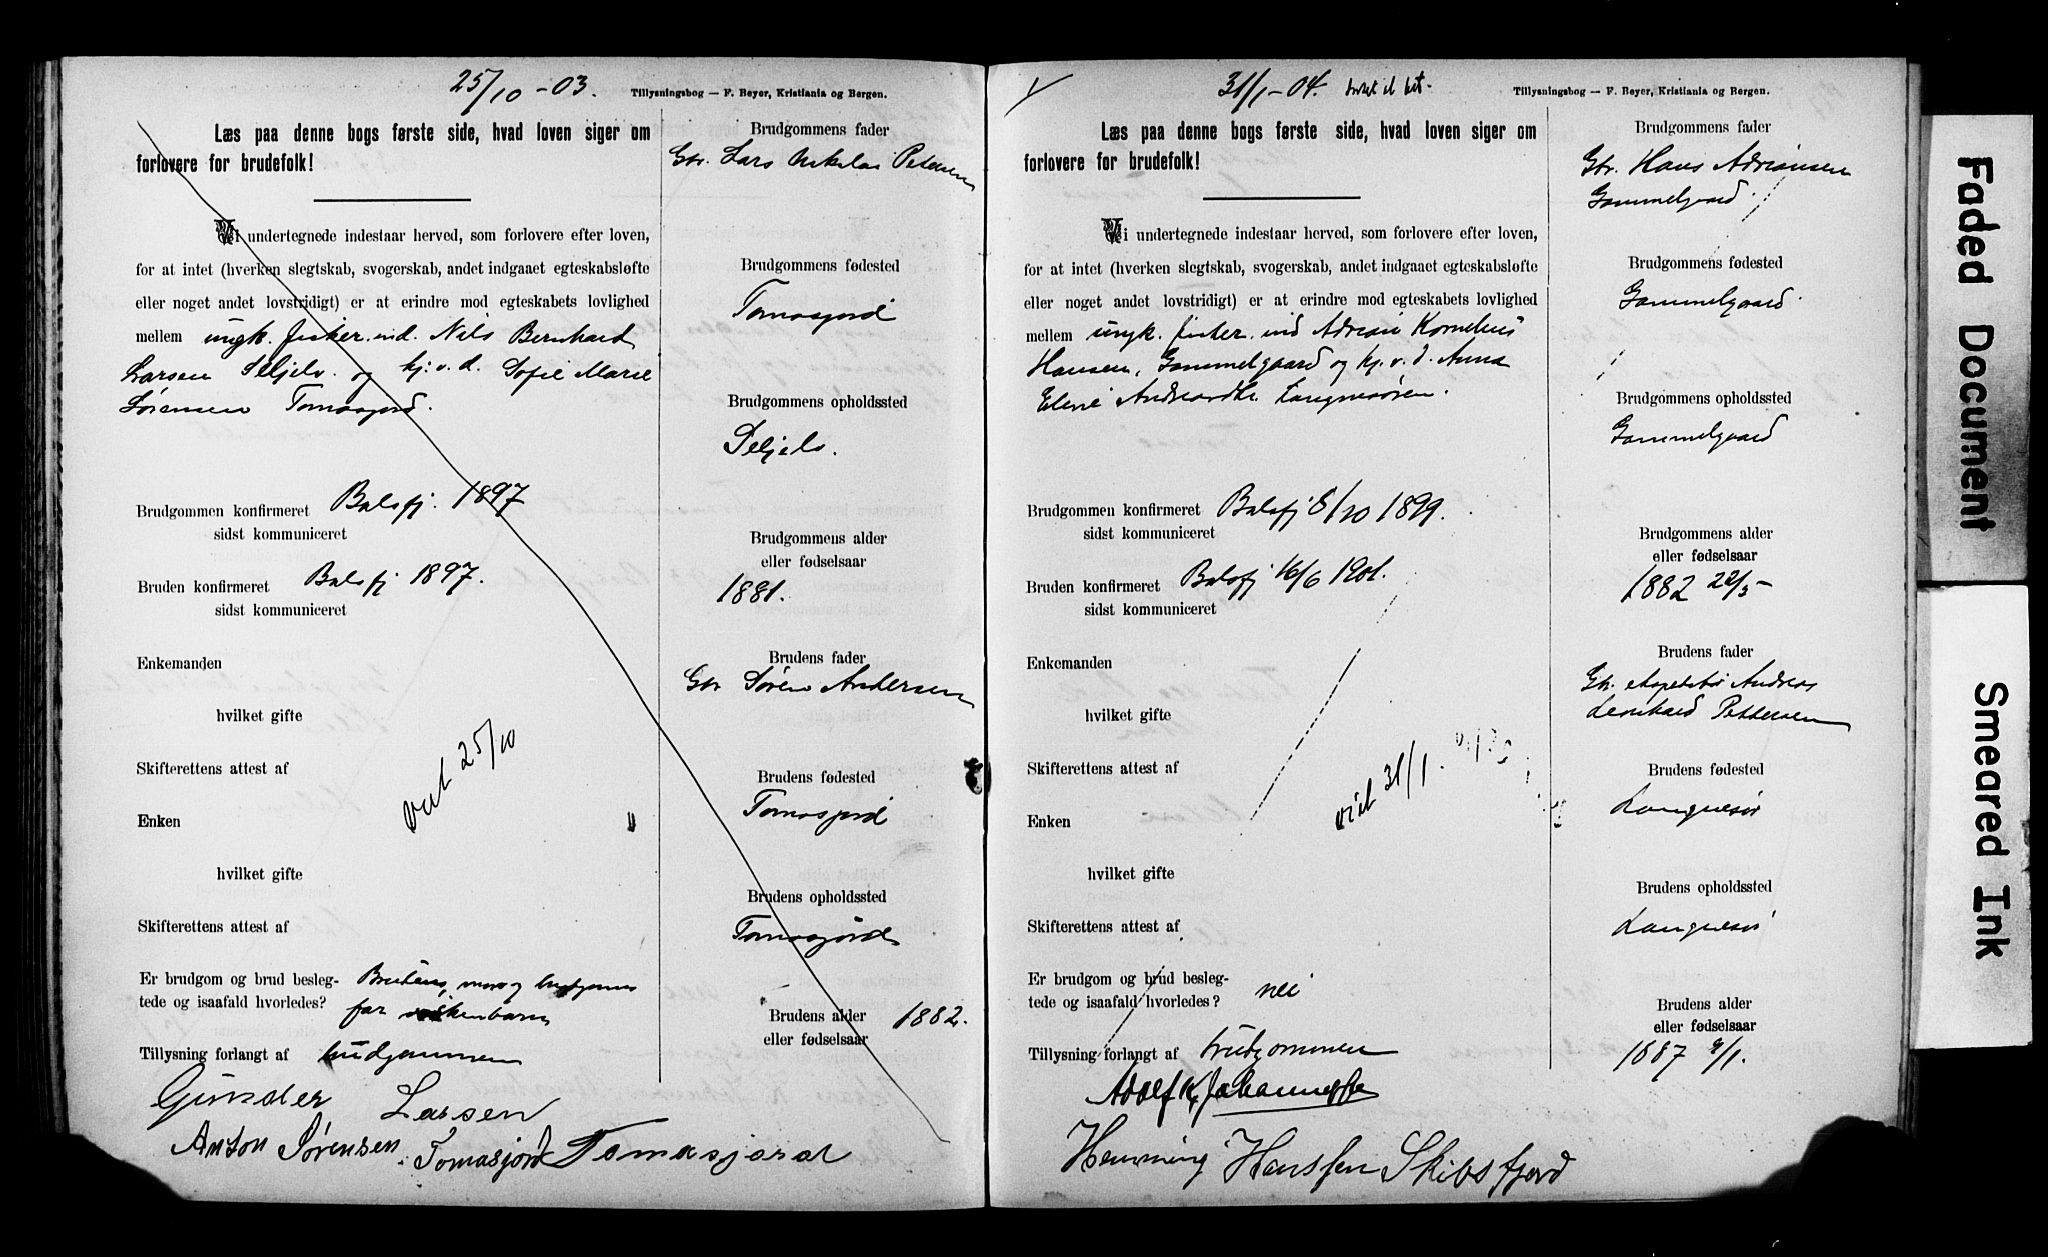 25/10 - 03.
Tillysningsbog — F. Beyer, Kristiania og Bergen.
Læs paa denne bogs første side, hvad loven siger om
forlovere for brudefolk!
Vi undertegnede indestaar herved, som forlovere efter loven,
for at intet (hverken slegtskab, svogerskab, andet indgaaet egteskabsløfte
eller noget andet lovstridigt) er at erindre mod egteskabets lovlighed
mellem ungk. fisker. ind. Nils Bernhard
Larsen Seljelv. og pj. v. d. Sofie Marie
Sørensen Tomasjord.
Brudgommen konfirmeret Balsfj. 1897
sidst kommuniceret
Bruden konfirmeret Balsfj 1897.
sidst kommuniceret
Enkemanden
hvilket gifte
Skifterettens attest af
viet 25/10
Enken
hvilket gifte
Skifterettens attest af
Er brudgom og brud besleg-
tede og isaafald hvorledes? Brudens mor og brudgommens
far søskenbarn
Tillysning forlangt af brudgommen
Gunder Larsen
Anton Sørensen. Tomasjord Tomasjord
Brudgommens fader
Gbr. Lars Nikolai Petersen
Brudgommens fødested
Tomasjord
Brudgommens opholdssted
Seljelv.
Brudgommens alder
eller fødselsaar
1881.
Brudens fader
Gbr Søren Andersen
Brudens fødested
Tomasjord
Brudens opholdssted
Tomasjord
Brudens alder
eller fødselsaar 1882.
31/1 - 04.
Tillysningsbog — F. Beyer, Kristiania og Bergen.
Læs paa denne bogs første side, hvad loven siger om
forlovere for brudefolk!
Vi undertegnede indestaar herved, som forlovere efter loven,
for at intet (hverken slegtskab, svogerskab, andet indgaaet egteskabsløfte
eller noget andet lovstridigt) er at erindre mod egteskabets lovlighed
mellem ungk. fisker. ind Adrian Kornelius
Hansen, Gammelgaard og pj. v. d. Anna
Eline Andreasdtr. Langnesøren.
Brudgommen konfirmeret Balsfj 8/10 1899.
sidst kommuniceret
Bruden konfirmeret Balsfj 16/6 1901.
sidst kommuniceret
Enkemanden
hvilket gifte
Skifterettens attest af
viet 31/1.
Enken
hvilket gifte
Skifterettens attest af
Er brudgom og brud besleg-
tede og isaafald hvorledes? nei
Tillysning forlangt af brudgommen
Adolf K. Johannessen
Henning Hanssen Skibsfjord
Brudgommens fader
Gbr. Hans Adriansen
Gammelgaard
Brudgommens fødested
Gammelgaard
Brudgommens opholdssted
Gammelgaard
Brudgommens alder
eller fødselsaar
1882 22/3
Brudens fader
Andreas
Leonhard Pettersen
Brudens fødested
Langnesør
Brudens opholdssted
Langnesør
Brudens alder
eller fødselsaar
1887 9/1.
Faded Document
Smeared Ink